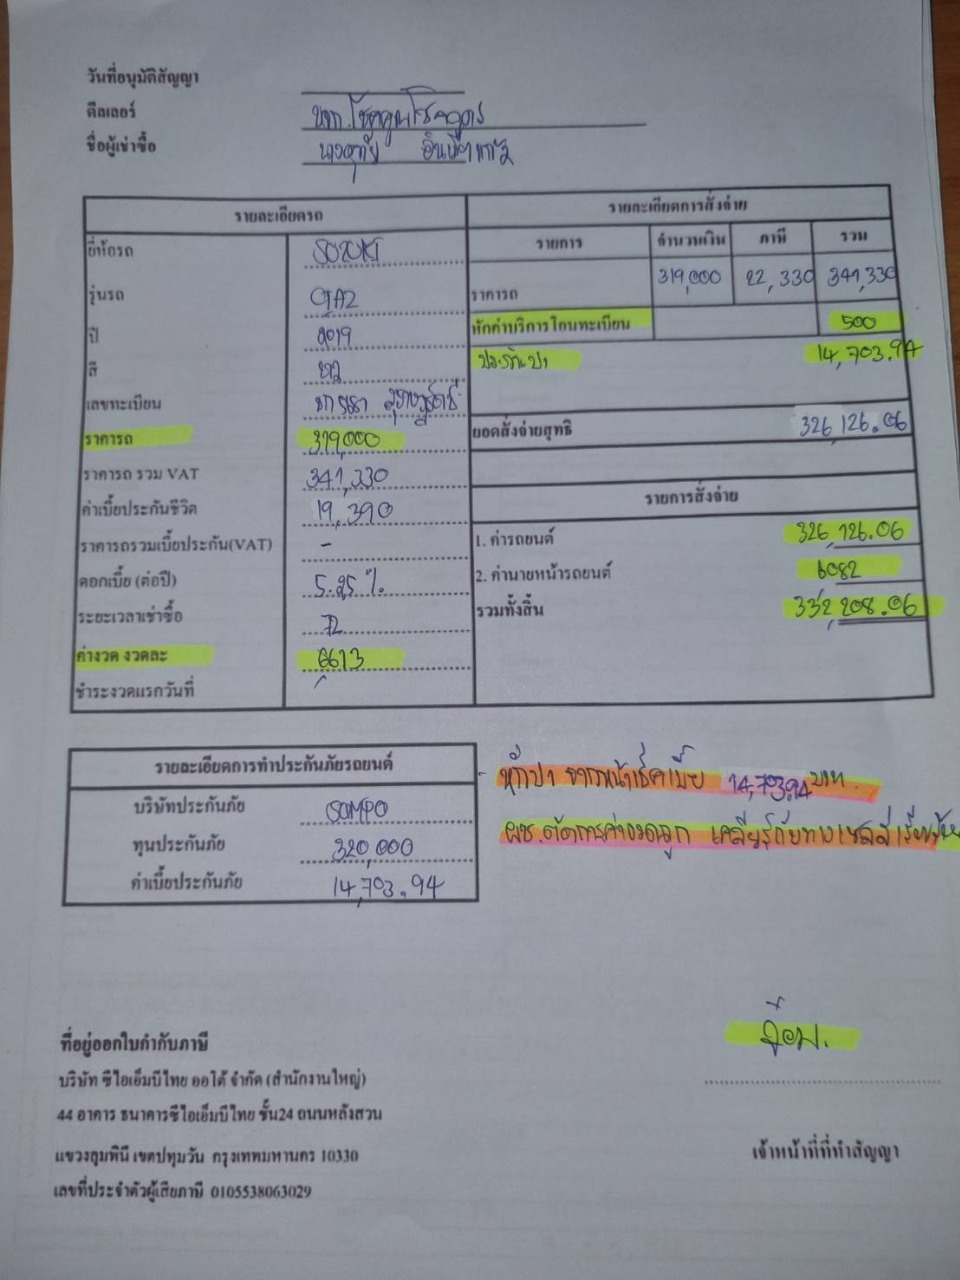 วันที่อนุมัติสัญญา
ดีลเลอร์ หจก.โชคคูณโชคถาวร
ชื่อผู้เช่าซื้อ
รายละเอียดรถ
ยี่ห้อรถ SUZUKI
รุ่นรถ CIAZ
ปี 2019
สี ขาว
เลขทะเบียน
ราคารถ 319,000
ราคารถ รวม VAT 341,330
ค่าเบี้ยประกันชีวิต 19,390
ราคารถรวมเบี้ยประกัน(VAT) -
ดอกเบี้ย (ต่อปี) 5.25 %
ระยะเวลาเช่าซื้อ 72
ค่างวด งวดละ 6613
ชำระงวดแรกวันที่
รายละเอียดการสั่งจ่าย
รายการ จำนวนเงิน ภาษี รวม
ราคารถ 319,000 22,330 341,330
หักค่าบริการโอนทะเบียน 500
ประกันป1 14,703.94
ยอดสั่งจ่ายสุทธิ 326,126.06
รายการสั่งจ่าย
1. ค่ารถยนต์ 326,126.06
2. ค่านายหน้ารถยนต์ 6082
รวมทั้งสิ้น 332,208.06
รายละเอียดการทำประกันภัยรถยนต์
บริษัทประกันภัย SOMPO
ทุนประกันภัย 320,000
ค่าเบี้ยประกันภัย 14,703.94
- หักป1 จากหน้าเช็คเบี้ย 14,703.94 บาท.
ที่อยู่ออกใบกำกับภาษี
บริษัท ซีไอเอ็มบีไทย ออโต้ จำกัด (สำนักงานใหญ่)
44 อาคาร ธนาคารซีไอเอ็มบีไทย ชั้น24 ถนนหลังสวน
แขวงลุมพินี เขตปทุมวัน กรุงเทพมหานคร 10330
เลขที่ประจำตัวผู้เสียภาษี 0105538063029
เจ้าหน้าที่ที่ทำสัญญา